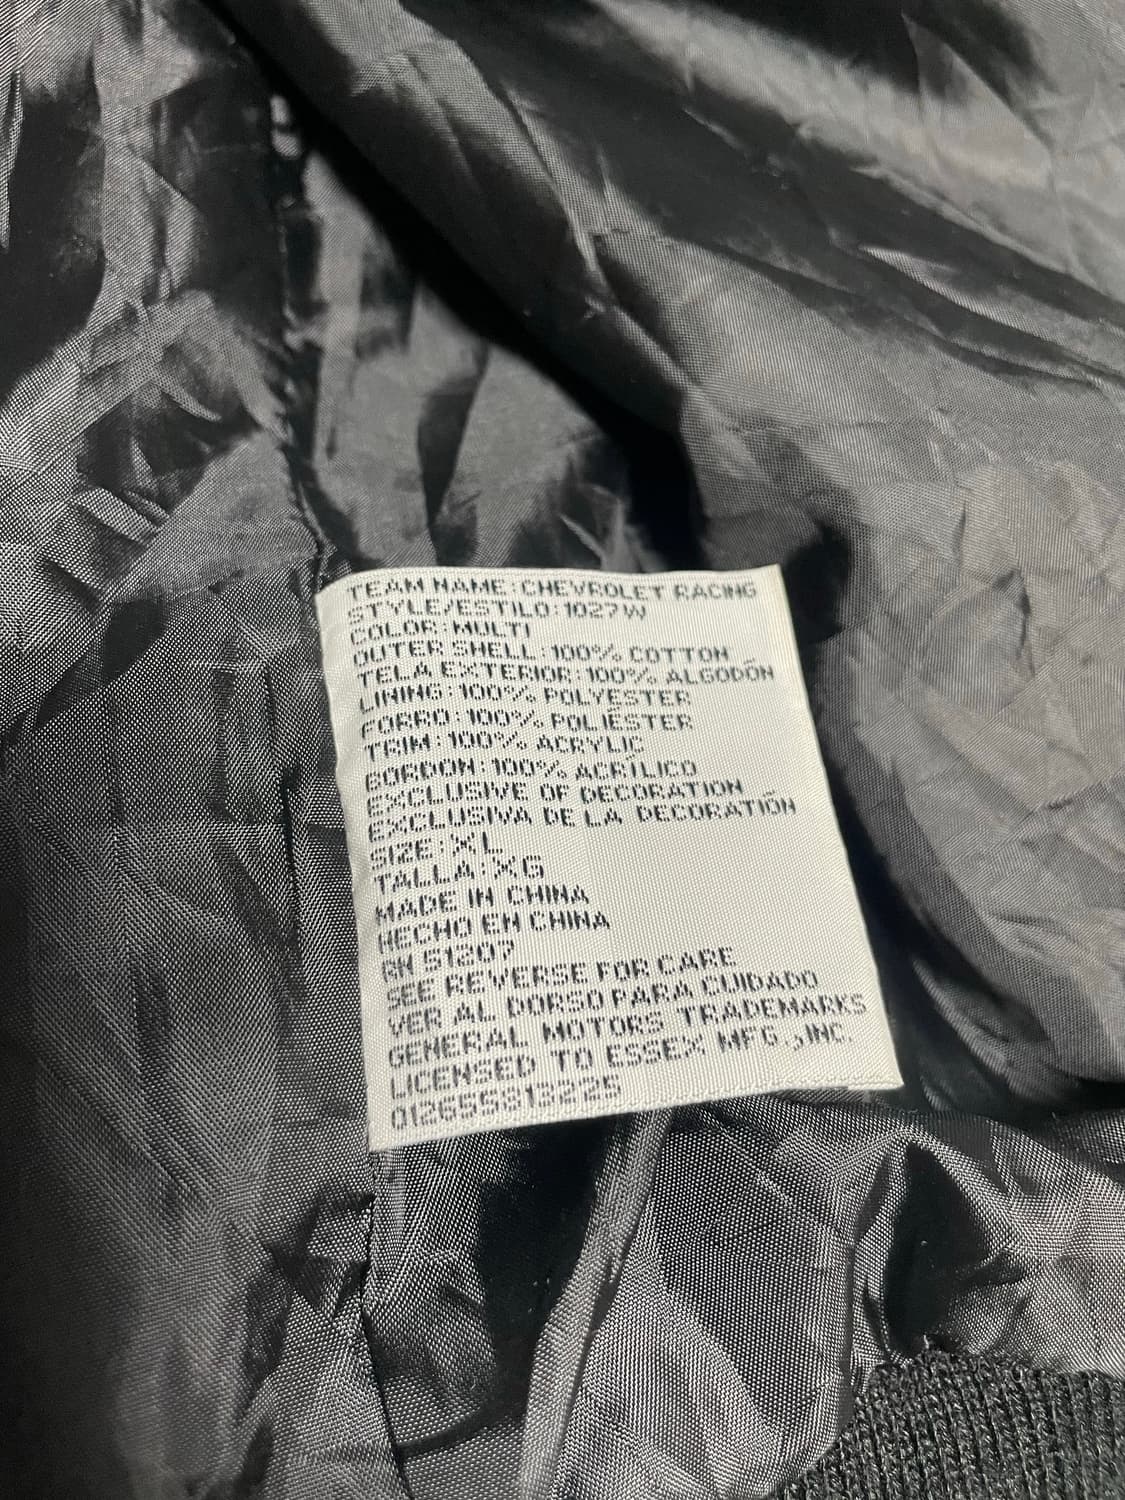 TEAM NAME:CHEVROLET RACING
STYLE/ESTILO:1027W
COLOR:MULTI
OUTER SHELL:100% COTTON
TELA EXTERIOR:100% ALGODÓN
LINING:100% POLYESTER
FORRO:100% POLIÉSTER
TRIM:100% ACRYLIC
BORDON:100% ACRÍLICO
EXCLUSIVE OF DECORATION
EXCLUSIVA DE LA DECORATIÓN
SIZE:XL
TALLA:XG
MADE IN CHINA
HECHO EN CHINA
RN 51207
SEE REVERSE FOR CARE
VER AL DORSO PARA CUIDADO
GENERAL MOTORS TRADEMARKS
LICENSED TO ESSEX MFG.,INC.
012655813225